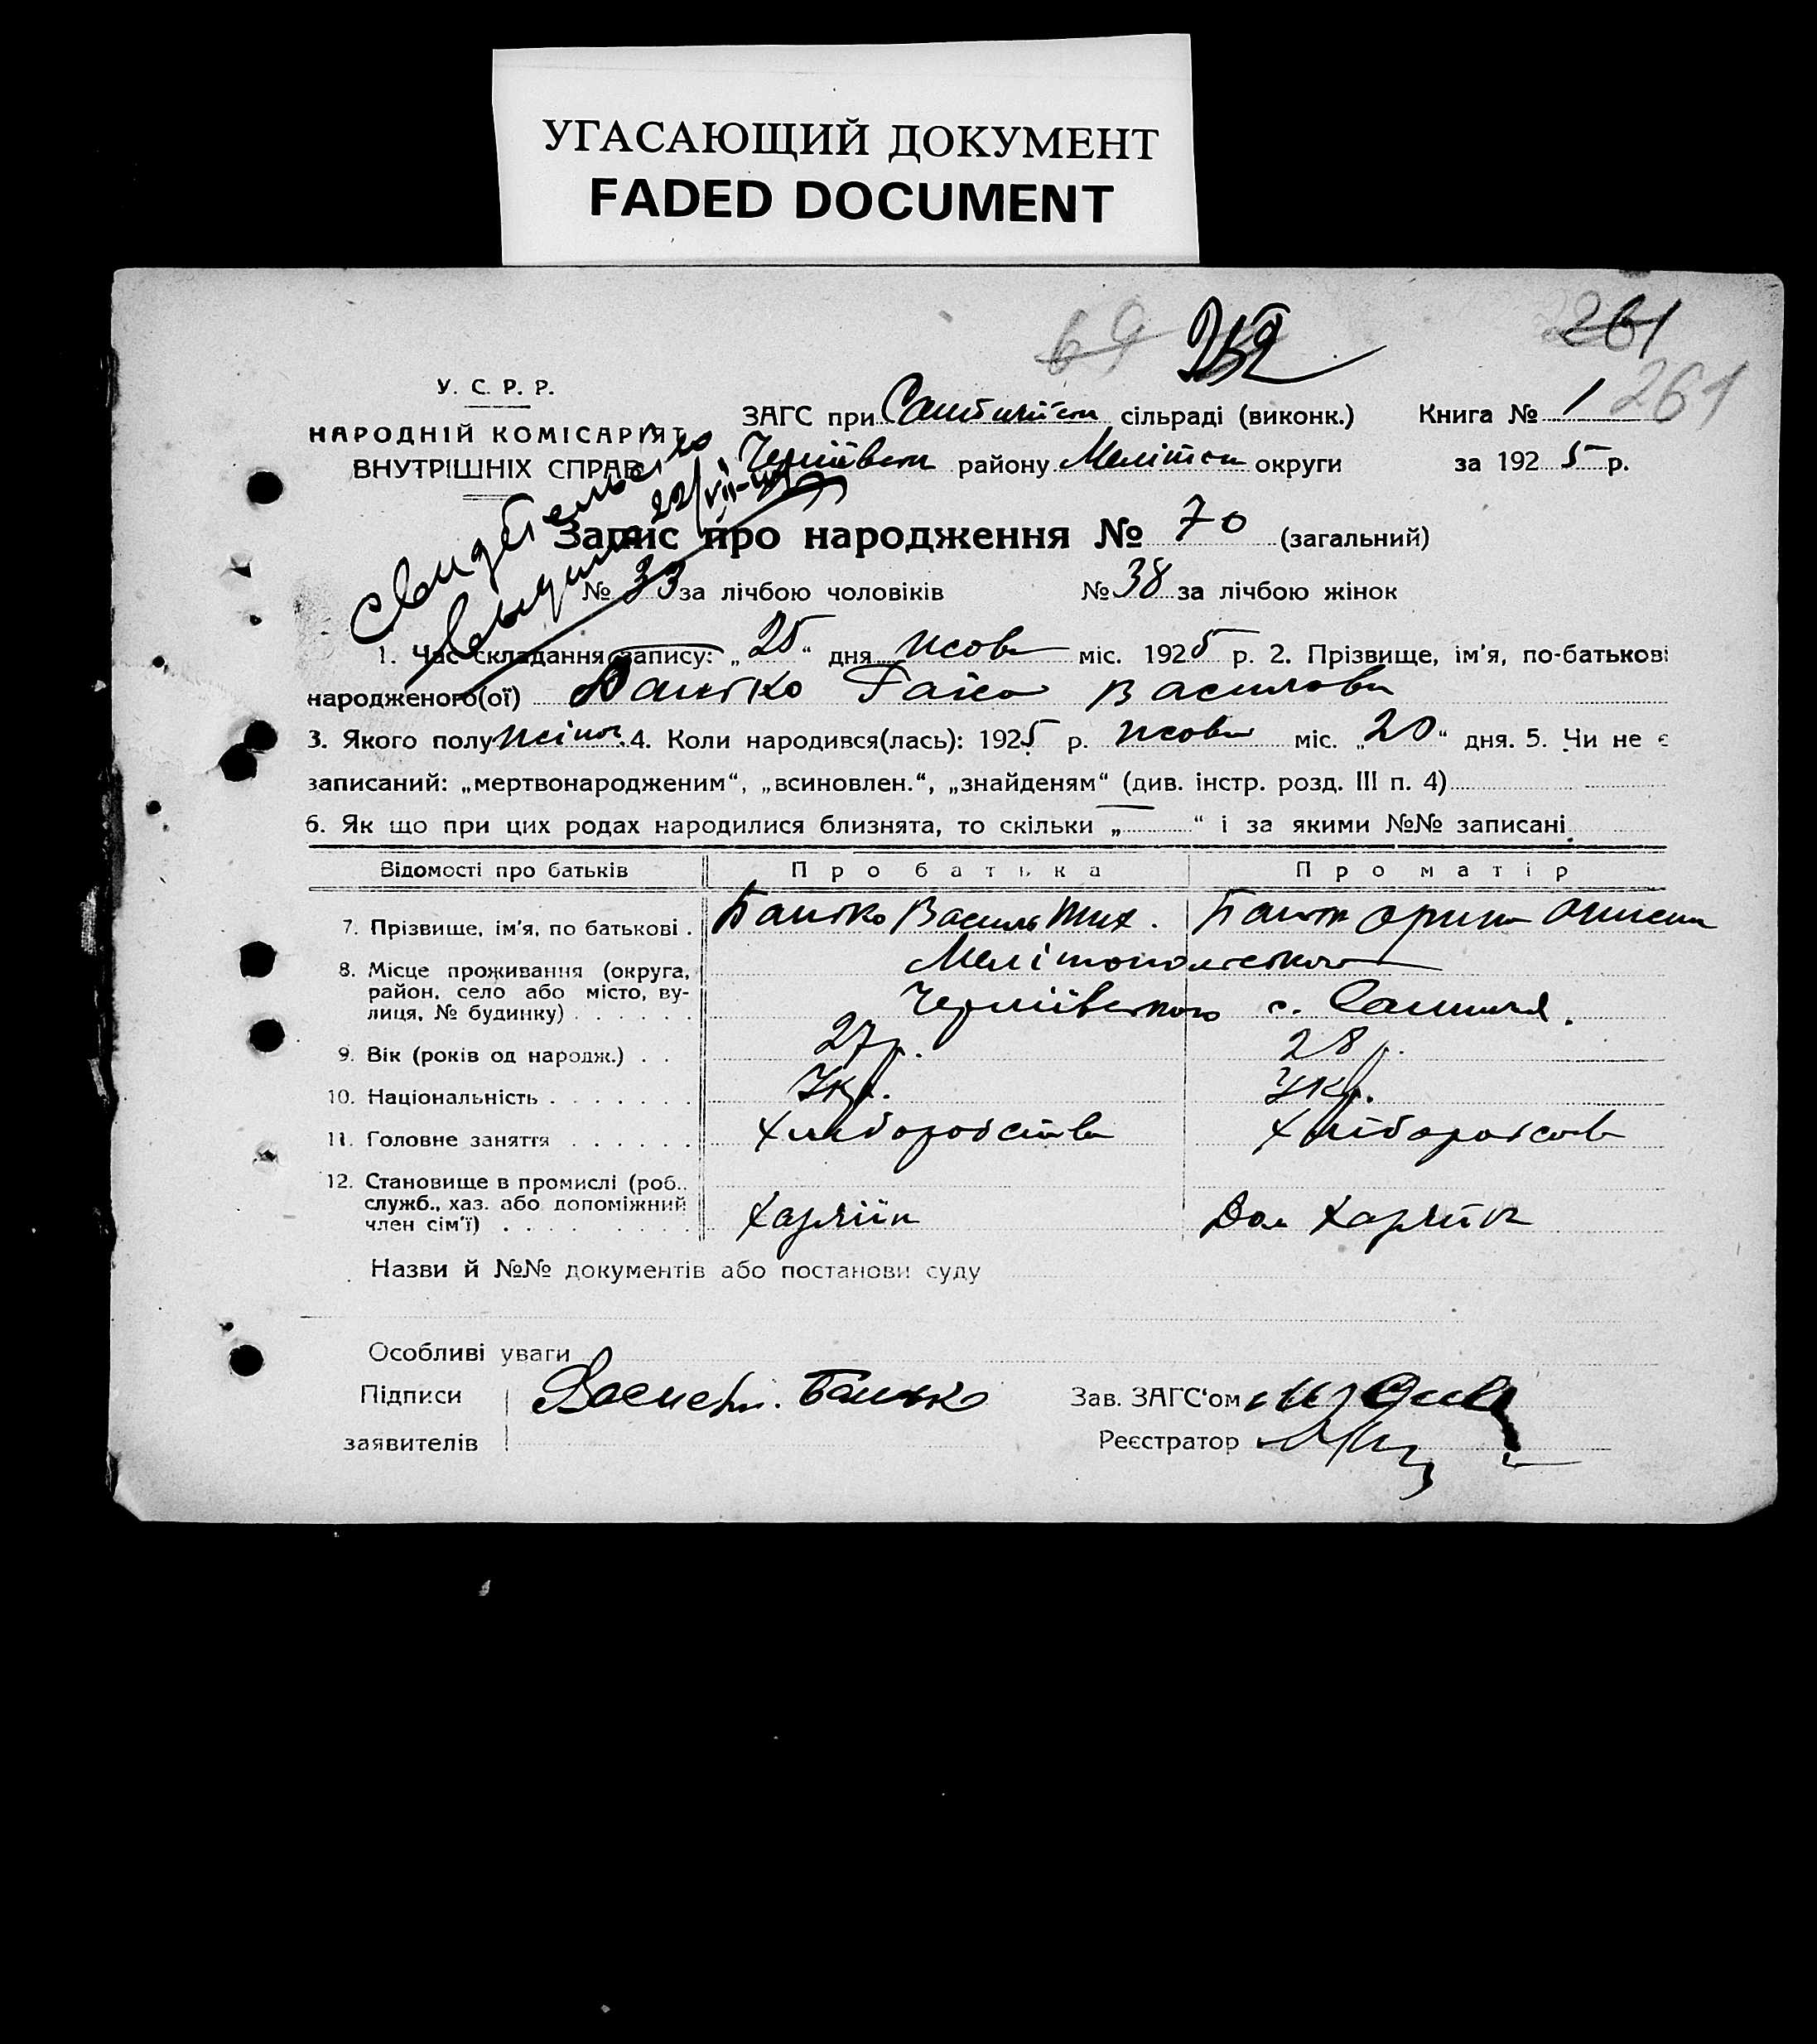 УГАСАЮЩИЙ ДОКУМЕНТ
FADED DOCUMENT
69 259 261
261
У. С. Р. Р.
НАРОДНІЙ КОМІСАРІЯТ
ВНУТРІШНІХ СПРАВ
ЗАГС при сільраді (виконк.) Книга № 1
району Меліт округи за 1925 р.
Свидетельство
22/VII-
Запис про народження № 70 (загальний)
№ 33 за лічбою чоловіків № 38 за лічбою жінок
1. Час складання запису: „25“ дня жовт міс. 1925 р. 2. Прізвище, ім'я, по-батькові
народженого(ої) Банько Василівн
3. Якого полу жіноч. 4. Коли народився(лась): 1925 р. жовт міс. „20“ дня. 5. Чи не є
записаний: „мертвонародженим“, „всиновлен.“, „знайденям“ (див. інстр. розд. III п. 4)
6. Як що при цих родах народилися близнята, то скільки „—“ і за якими №№ записані
Відомості про батьків Про батька Про матір
7. Прізвище, ім'я, по батькові . Банько Василь Тих. Орина
8. Місце проживання (округа, Мелітопольської
район, село або місто, ву- с.
лиця, № будинку) . . . . . .
9. Вік (років од народж.) . . 27 р. 28 р.
10. Національність . . . . . . . Укр. Укр.
11. Головне заняття . . . . . . Хліборобства Хліборобств
12. Становище в промислі (роб.,
служб., хаз. або допоміжний
член сім'ї) . . . . . . Хазяїн Доп Хазяїн
Назви й №№ документів або постанови суду
Особливі уваги
Підписи Банько Зав. ЗАГС'ом
заявителів Реєстратор